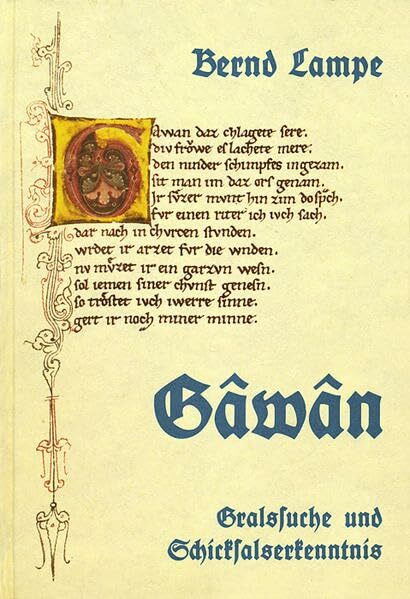 Bernd Lampe
Gawan daz chlagete sere.
div frôwe es lachete mere.
den ninder schimpfes ingezam.
sit man im daz ors genam.
Ir sv̊zer mvnt hin zim do sp̃ch.
fvr einen riter ich ivch sach.
dar nach in chvrcen stvnden.
wrdet ir arzet fvr die wnden.
nv mv̊zet ir ein garzvn wesn.
sol iemen siner chvnst genesn.
so trôstet ivch iwerre sinne.
gert ir noch miner minne.
Gâwân
Gralsſuche und
Schickſalserkenntnis